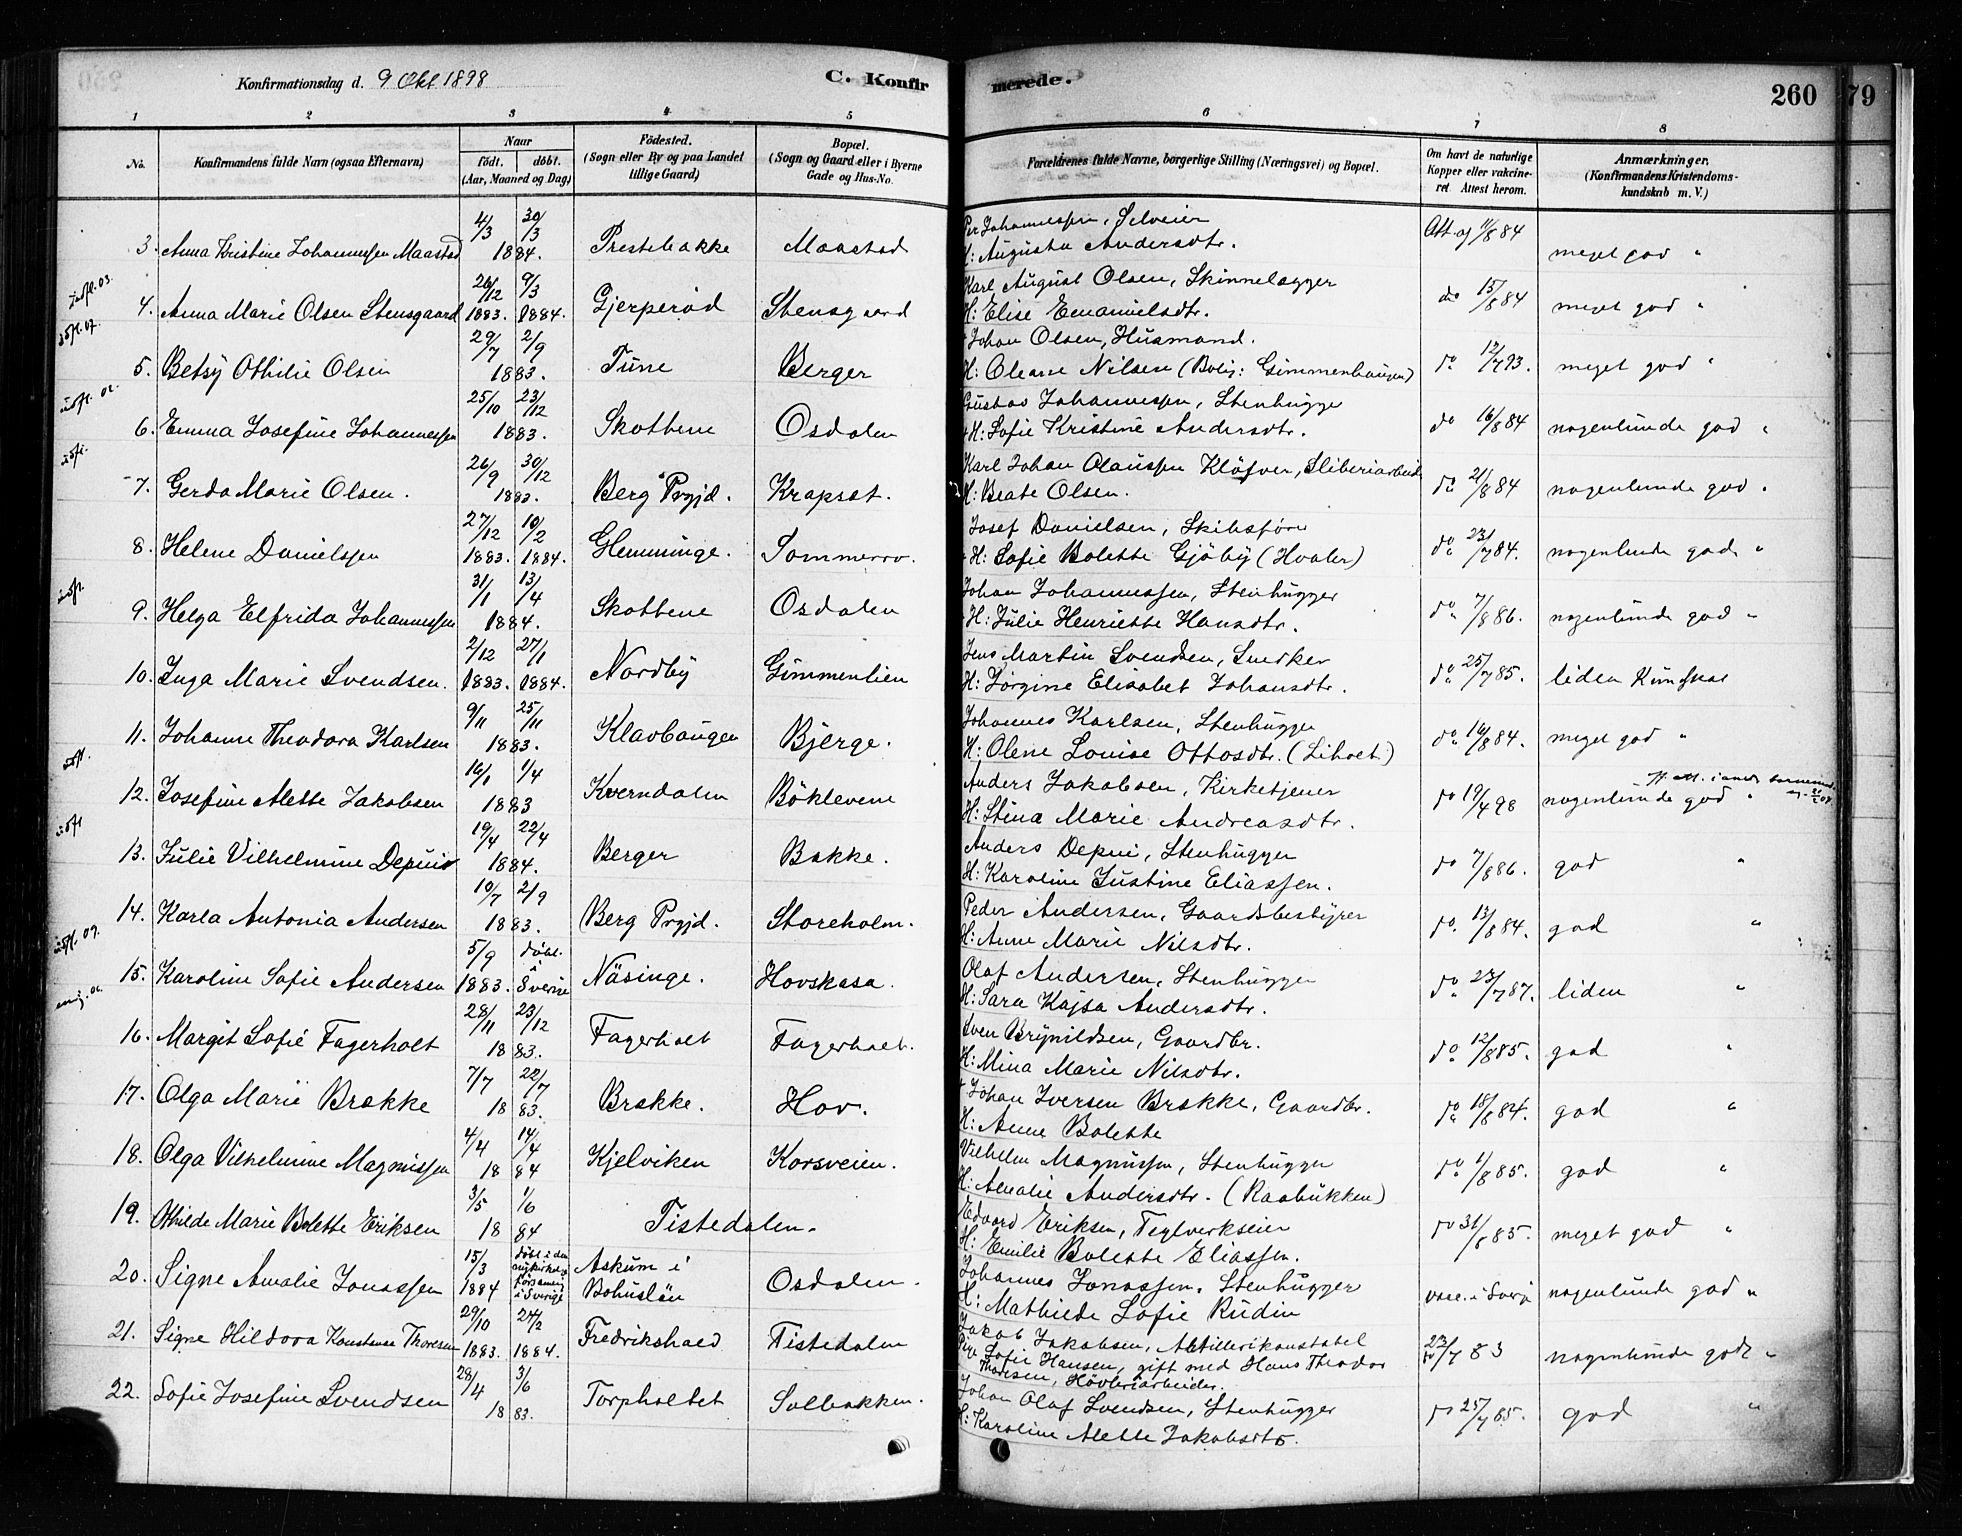 Konfirmationsdag d. 9 Okt 1898
C. Konfirmerede.
260
79
1 2 3 4 5 6 7 8
No.
Konfirmandens fulde Navn (ogsaa Efternavn)
Naar
født. døbt.
(Aar, Maaned og Dag)
Fødested.
(Sogn eller By og paa Landet
tillige Gaard)
Bopæl.
(Sogn og Gaard eller i Byerne
Gade og Hus-No.
Forældrenes fulde Navne, borgerlige Stilling (Næringsvei) og Bopæl.
Om havt de naturlige
Kopper eller vakcine-
ret. Attest herom.
Anmærkninger.
(Konfirmandens Kristendoms-
kundskab m. V.)
3. Anna Kristine Johannessen Maastad 4/3 30/3 1884. Prestebakke Maastad Per Johannessen, Selveier
H: Augusta Andersdtr. Att. af 11/8 84 meget god "
4. Anna Marie Olsen Stensgaard 26/12 1883. 9/3 1884. Gjerperød Stensgaard Karl August Olsen, Skinnelægger
H: Elise Emanuelsdtr. do 15/8 84 meget god "
5. Betsy Othilie Olsen 29/7 2/9 1883. Tune Berger Johan Olsen, Husmand.
H: Oleane Nilsen (Bolig: Gimmenhaugen) do 12/7 93. meget god "
6. Emma Josefine Johannessen 25/10 23/12 1883. Skottene Osdalen Gustav Johannessen, Stenhugger
H: Sofie Kristine Andersdtr. do 16/8 84 nogenlunde god "
7. Gerda Marie Olsen. 26/9 30/12 1883. Berg Prgjd. Krapsæt. Karl Johan Olaussen Kløfver, Sliberiarbeid
H: Beate Olsen. do 21/8 84 nogenlunde god "
8. Helene Danielssen 27/12 1883. 10/2 1884. Glemminge. Sommerro. Josef Danielsen, Skibsfører
H: Sofie Bolette Gjøby (Hvaler) do 23/7 84. nogenlunde god "
9. Helga Elfrida Johannessen 31/1 13/4 1884. Skottene Osdalen Johan Johannessen, Stenhugger
H: Julie Henriette Hansdtr. do 7/8 86. nogenlunde god "
10. Inga Marie Svendsen. 2/12 1883. 27/1 1884. Nordby Gimmenlien Jens Martin Svendsen, Snedker
H: Jørgine Elisabet Johansdtr. do 25/7 85. liden Kundskab
11. Johanne Theodora Karlsen 9/11 25/11 1883. Klavhaugen Bjerge. Johannes Karlsen, Stenhugger
H: Olene Louise Ottosdtr. (Liholt) do 16/8 84. meget god "
12. Josefine Alette Jakobsen 16/1 1/4 1883 Kverndalen Böklevene Anders Jakobsen, Kirketjener
H: Stina Marie Andreasdtr. do 19/4 98 nogenlunde god "
13. Julie Vilhelmine Depui 19/4 22/4 1884. Berger Bakke. Anders Depui, Stenhugger
H: Karoline Justine Eliassen. do 7/8 86. god "
14. Karla Antonia Andersen 10/7 2/9 1883. Berg Prgjd. Storeholm. Peder Andersen, Gaardsbestyrer
H: Anne Marie Nilsdtr. do. 13/8 84. god "
15. Karoline Sofie Andersen 5/9 1883. døbt i Sverige Näsinge. Hovskasa. Olaf Andersen, Stenhugger
H: Sara Kajsa Andersdtr. do 23/7 87. liden "
16. Margit Sofie Fagerholt 28/11 23/12 1883. Fagerholt Fagerholt. Sven Brynildsen, Gaardbr.
H: Mina Marie Nilsdtr. do 12/8 85. god "
17. Olga Marie Brække 7/7 22/7 1883. Brække. Hov. Johan Iversen Brække, Gaardbr.
H: Anne Bolette do 18/8 84. god "
18. Olga Vilhelmine Magnussen 4/4 14/4 1884 Kjelviken Korsveien. Vilhelm Magnussen, Stenhugger
H: Amalie Andersdtr. (Raabukken) do 1/8 85. god "
19. Othilde Marie Bolette Eriksen 3/5 1/6 1884 Tistedalen. Edvard Eriksen, Teglverkseier
H: Emilie Bolette Eliassen. do 31/8 85. meget god "
20. Signe Amalie Jonassen 15/3 1884 døbt i den i Sverige Askum i Bohuslän Osdalen. Johannes Jonassen, Stenhugger
H: Mathilde Sofie Rudin vacc. i Sverge nogenlunde god "
21. Signe Hildora Konstanse Thoresen 29/10 1883. 24/2 1884. Fredrikshald Tistedalen Jakob Jakobsen, Artillerikonstabel
Pige Sofie Hansen, gift med Hans Theodor
Thoresen, Høvleriarbeider. do 23/7 83 nogenlunde god "
22. Sofie Josefine Svendsen 28/4 3/6 1883. Torpholtet Solbakken. Johan Olaf Svendsen, Stenhugger
H: Karoline Alette Jakobsdtr. do 25/7 85. god "